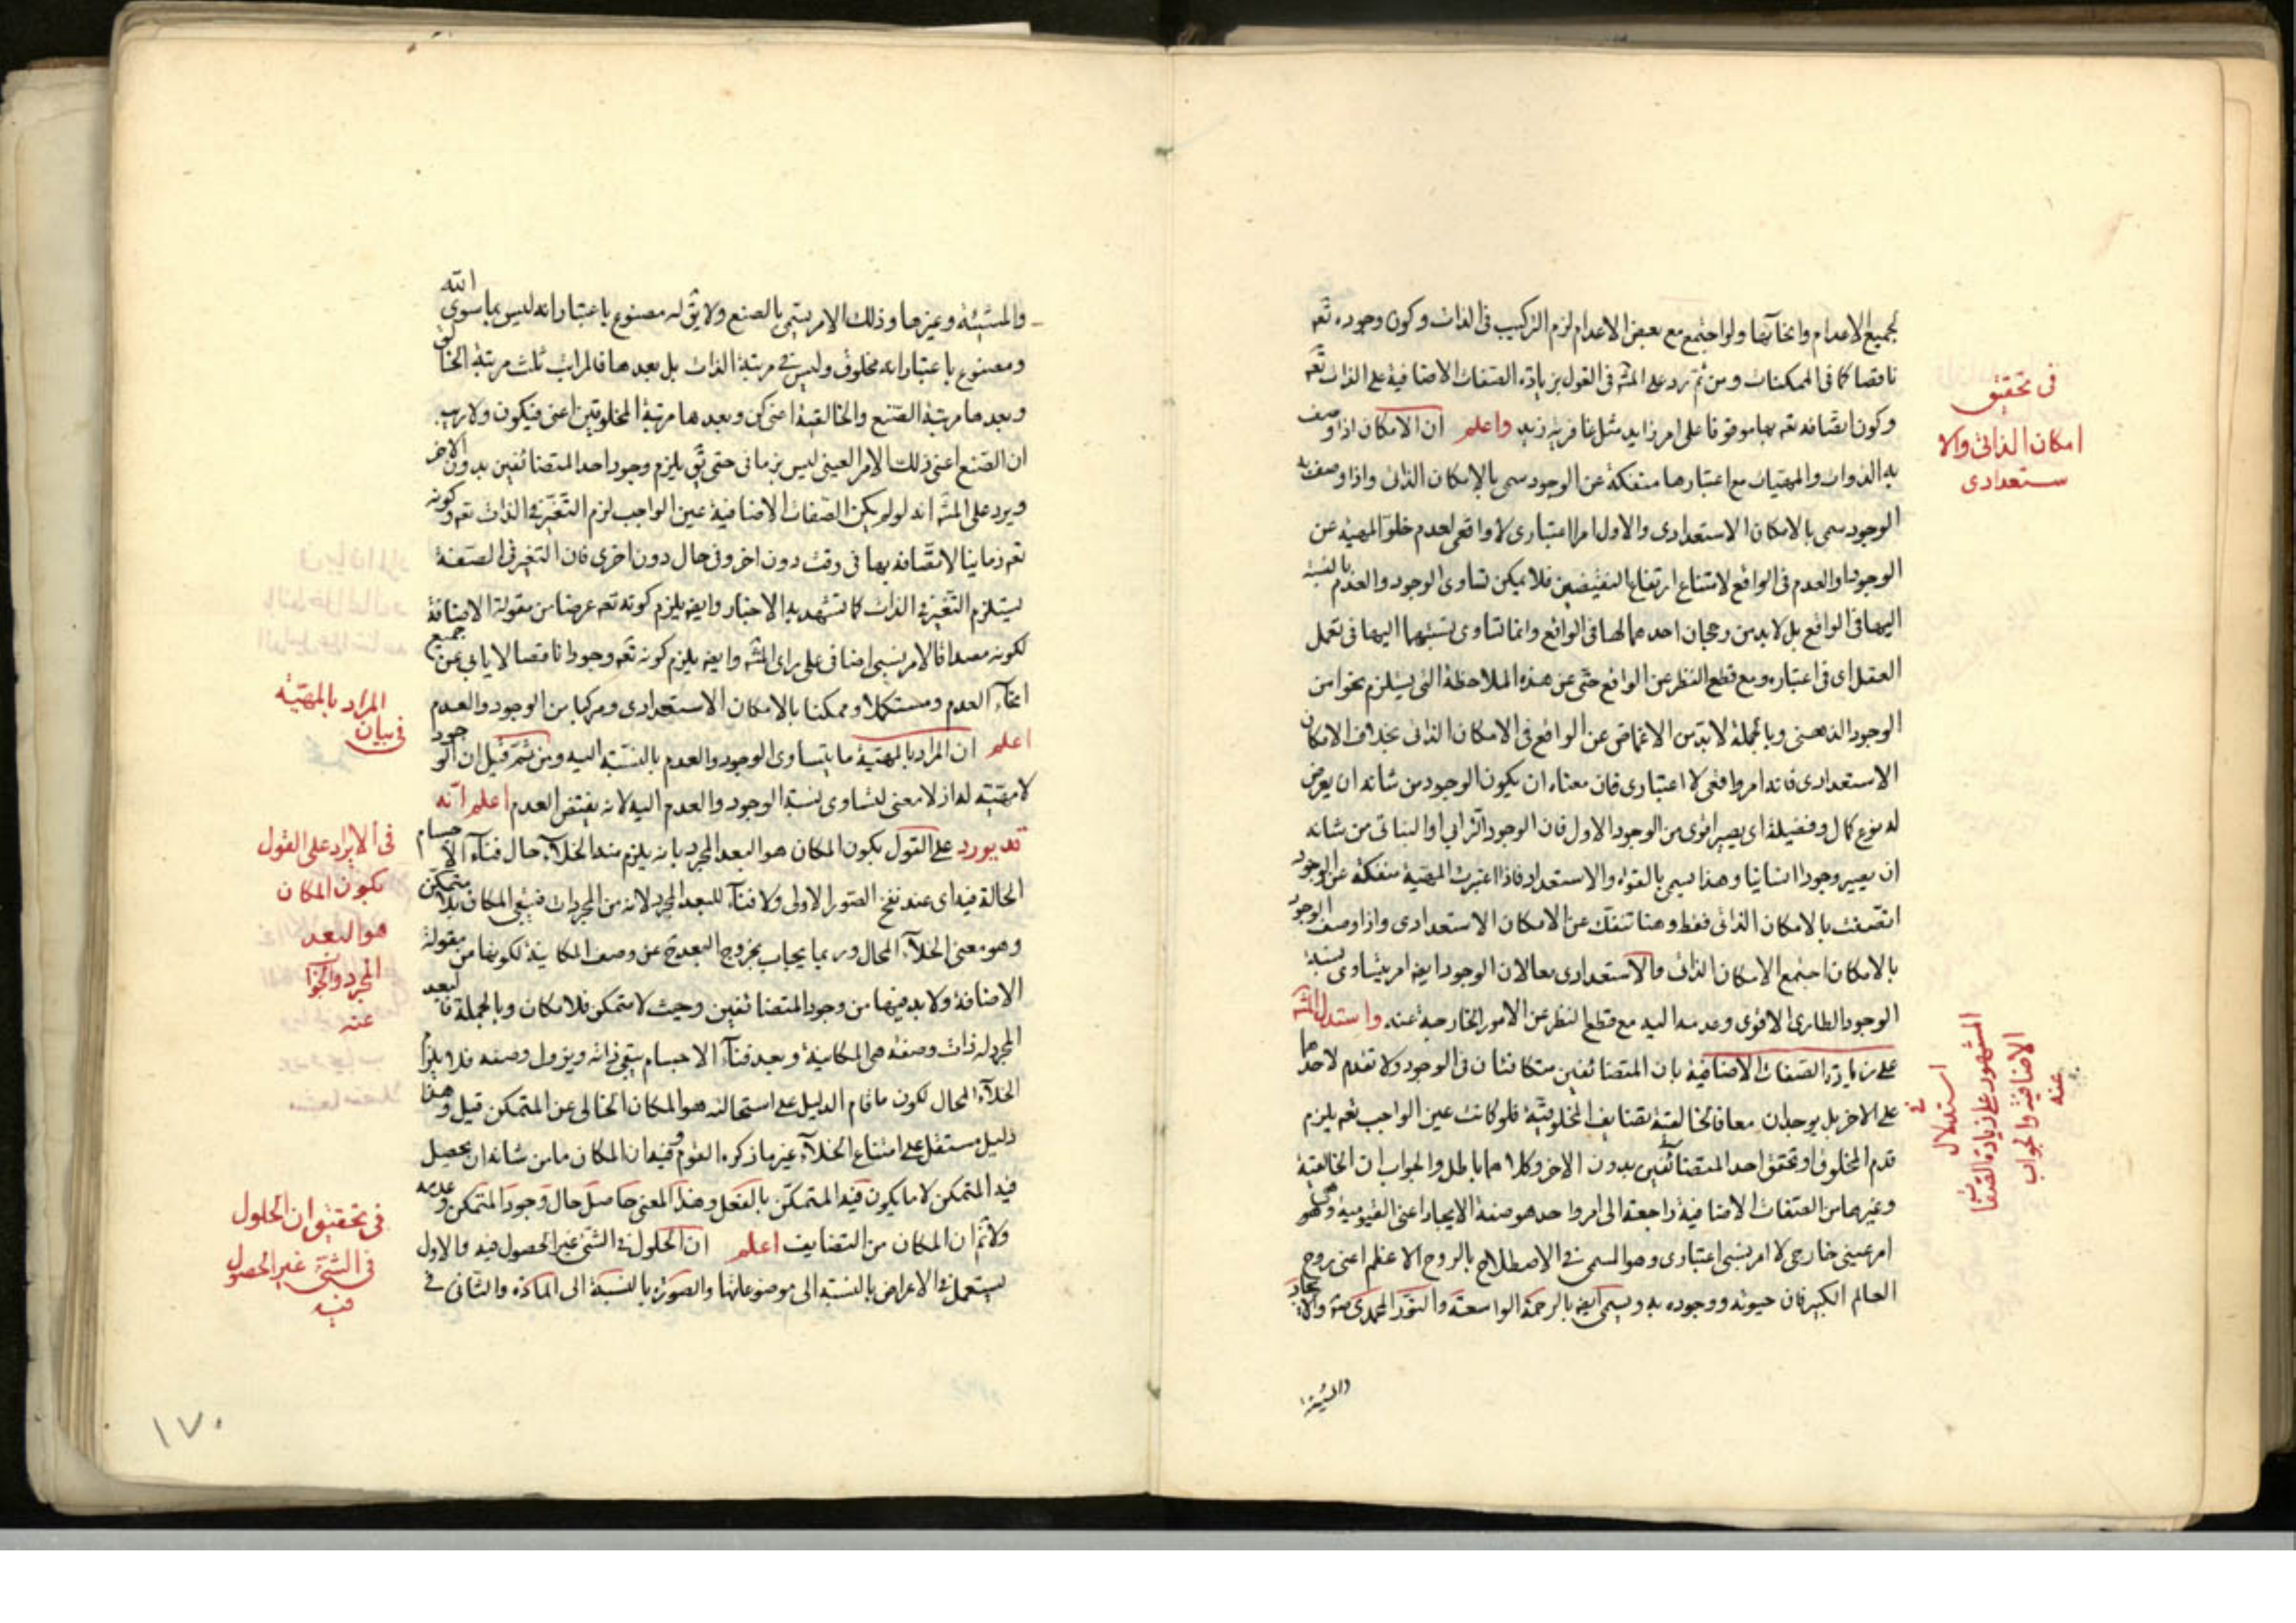 لجميع الاعدام وانحآئها ولو اجتمع مع بعض الاعدام لزم التركيب فى الذات وكون وجوده تعه
ناقصا كما فى الممكنات ومن ثم يرد على المشه فى القول بزيادة الصفات الاضافية على الذات تعه
وكون اتصافه تعه بها موقوفا على امر زايد واعلم ان الامكان اذا وصف
به الذوات والمهيات مع اعتبارها منفكة عن الوجود سمى بالامكان الذاتى واذا وصف به
الوجود سمى بالامكان الاستعدادى والاول امر اعتبارى لا واقعى لعدم خلو المهية عن
الوجود والعدم فى الواقع لامتناع ارتفاع النقيضين فلا يمكن تساوى الوجود والعدم بالنسبة
اليها فى الواقع بل لابد من رجحان احدهما لها فى الواقع وانما تساوى نسبتهما اليها فى تعمل
العقل اى فى اعتباره ومع قطع النظر عن الواقع حتى عن هذه الملاحظة التى يستلزم نحوا من
الوجود الذهنى وبالجملة لابد من الاغماض عن الواقع فى الامكان الذاتى بخلاف الامكان
الاستعدادى فانه امر واقعى لا اعتبارى فان معناه ان يكون الوجود من شانه ان يعرض
له نوع كمال وفضيلة اى يصير اقوى من الوجود الاول فان الوجود الترابى او النباتى من شانه
ان يصير وجودا انسانيا وهذا يسمى بالقوة والاستعداد فاذا اعتبرت المهية منفكة عن الوجود
اتصفت بالامكان الذاتى فقط وهنا تنفك عن الامكان الاستعدادى واذا وصف الوجود
بالامكان اجتمع الامكان الذاتى والاستعدادى معا لان الوجود ايضه امر يتساوى نسبة
الوجود الطارى الاقوى وعدمه اليه مع قطع النظر عن الامور الخارجية عنه واستدل المشه
على زيادة الصفات الاضافية بان المتضائفين متكافئان فى الوجود ولا تقدم لاحدهما
على الاخر بل يوجدان معا فالخالقية تضايف المخلوقية فلو كانت عين الواجب تعه يلزم
قدم المخلوق او تحقق احد المتضائفين بدون الاخر وكلاهما باطل والجواب ان الخالقية
وغيرها من الصفات الاضافية راجعة الى امر واحد هو صفة الايجاد اعنى القيومية وهى
امر عينى خارجى لا امر نسبى اعتبارى وهو المسمى فى الاصطلاح بالروح الاعظم اعنى روح
العالم الكبير فان حيوته ووجوده به ويسمى ايضه بالرحمة الواسعة والنور المحمدى والايجاد
والمشية
فى تحقيق
امكان الذاتى والا
ستعدادى
فى
استدلال
المشهور على زيادة الصفات
الاضافية والجواب
عنه
والمشيئة وغيرها وذلك الامر يسمى بالصنع ولا يق له مصنوع باعتبار انه ليس بما سوى الله
ومصنوع باعتبار انه مخلوق وليس فى مرتبة الذات بل بعدها فالمراتب ثلث مرتبة الخالق
وبعدها مرتبة الصنع والخالقية اعنى كن وبعدها مرتبة المخلوقين اعنى فيكون ولا ريب
ان الصنع اعنى ذلك الامر العينى ليس بزمانى حتى يق يلزم وجود احد المتضائفين بدون الاخر
ويرد على المشه انه لو لم يكن الصفات الاضافية عين الواجب لزم التغير فى الذات تعه وكونه
تعه زمانيا لاتصافه بها فى وقت دون اخر وفى حال دون اخرى فان التغير فى الصفة
يستلزم التغير فى الذات كما تشهد به الاخبار وايضه يلزم كونه تعه عرضا من مقولة الاضافة
لكونه مصداقا لامر نسبى اضافى على راى المشه وايضه يلزم كونه تعه وجودا ناقصا لا يابى عن جميع
انحآء العدم ومستكملا وممكنا بالامكان الاستعدادى ومركبا من الوجود والعدم
اعلم ان المراد بالمهية ما يتساوى الوجود والعدم بالنسبة اليه ومن ثم قيل ان الوجود
لا مهية له اذ لا معنى لتساوى نسبة الوجود والعدم اليه لانه نقيض العدم اعلم انه
قد يورد على القول بكون المكان هو البعد المجرد بانه يلزم منه الخلآء حال فنآء الاجسام
الحالة فيه اى عند نفخ الصور الاولى ولا فنآء للبعد المجرد لانه من المجردات فيبقى المكان بلا متمكن
وهو معنى الخلآء المحال وربما يجاب بخروج البعد ح عن وصف المكانية لكونها من مقولة
الاضافة ولا بد فيها من وجود المتضائفين وحيث لا متمكن فلا مكان وبالجملة فالبعد
المجرد له ذات وصفة هى المكانية وبعد فنآء الاجسام يبقى ذاته ويزول وصفه فلا يلزم
الخلآء المحال لكون ما قام الدليل على استحالته هو المكان الخالى عن المتمكن قيل وهذا
دليل مستقل على امتناع الخلآء غير ما ذكره القوم وفيه ان المكان ما من شانه ان يحصل
فيه المتمكن لا ما يكون فيه المتمكن بالفعل وهذا المعنى حاصل حال وجود المتمكن وعدمه
ولا نم ان المكان من التضايف اعلم ان الحلول فى الشئ غير الحصول فيه فالاول
يستعمل فى الاعراض بالنسبة الى موضوعاتها والصورة بالنسبة الى المادة والثانى فى
المراد بالمهية
فى بيان
فى الايراد على القول
بكون المكان
هو البعد
المجرد والجواب
عنه
فى تحقيق ان الحلول
فى الشئ غير الحصول
فيه
١٧٠